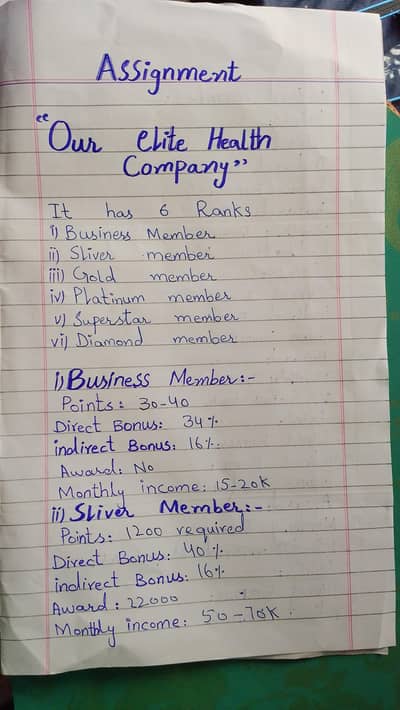 Assignment
"Our elite Health
Company"
It has 6 Ranks
i) Business Member
ii) Sliver member
iii) Gold member
iv) Platinum member
v) Superstar member
vi) Diamond member
i) Business Member:-
Points: 30-40
Direct Bonus: 34%
indirect Bonus: 16%
Award: No
Monthly income: 15-20k
ii) Sliver Member:-
Points: 1200 required
Direct Bonus: 40%
indirect Bonus: 16%
Award: 22000
Monthly income: 50-70k.